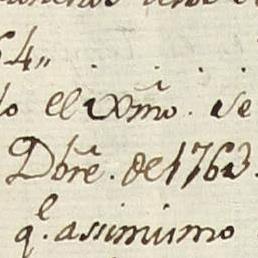 64,,
el exmo. Se
Dbre. de 1763.
q.e assimismo